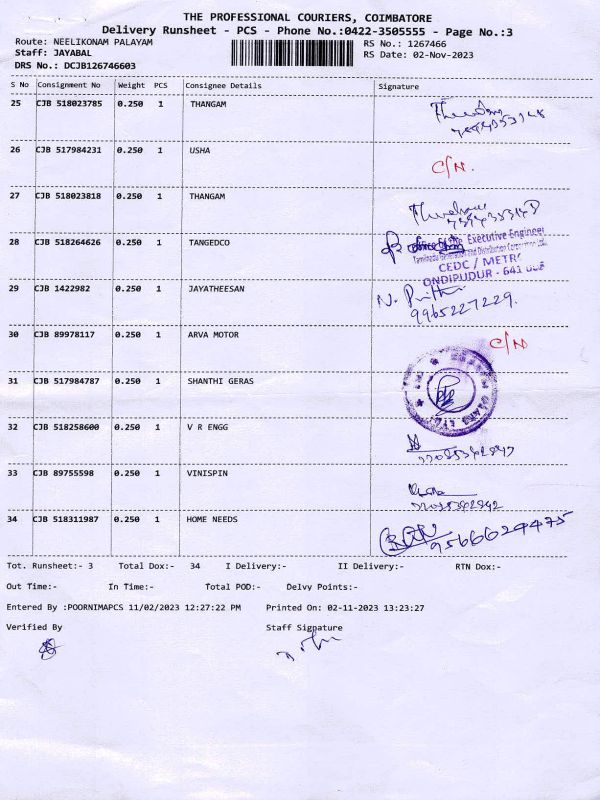 THE PROFESSIONAL COURIERS, COIMBATORE
Delivery Runsheet - PCS - Phone No.:0422-3505555 - Page No.:3
Route: NEELIKONAM PALAYAM
RS No.: 1267466
Staff: JAYABAL
RS Date: 02-Nov-2023
DRS No.: DCJB126746603
S No Consignment No Weight PCS Consignee Details Signature
25 CJB 518023785 0.250 1 THANGAM
26 CJB 517984231 0.250 1 USHA C/N.
27 CJB 518023818 0.250 1 THANGAM
28 CJB 518264626 0.250 1 TANGEDCO
Office of the Executive Engineer
Tamilnadu Generation and Distribution Corporation Ltd.
CEDC / METRO
ONDIPUDUR - 641
29 CJB 1422982 0.250 1 JAYATHEESAN N.
9965227229.
30 CJB 89978117 0.250 1 ARVA MOTOR C/N
31 CJB 517984787 0.250 1 SHANTHI GERAS
32 CJB 518258600 0.250 1 V R ENGG
33 CJB 89755598 0.250 1 VINISPIN
34 CJB 518311987 0.250 1 HOME NEEDS 9566629475
Tot. Runsheet:- 3 Total Dox:- 34 I Delivery:- II Delivery:- RTN Dox:-
Out Time:- In Time:- Total POD:- Delvy Points:-
Entered By :POORNIMAPCS 11/02/2023 12:27:22 PM Printed On: 02-11-2023 13:23:27
Verified By Staff Signature